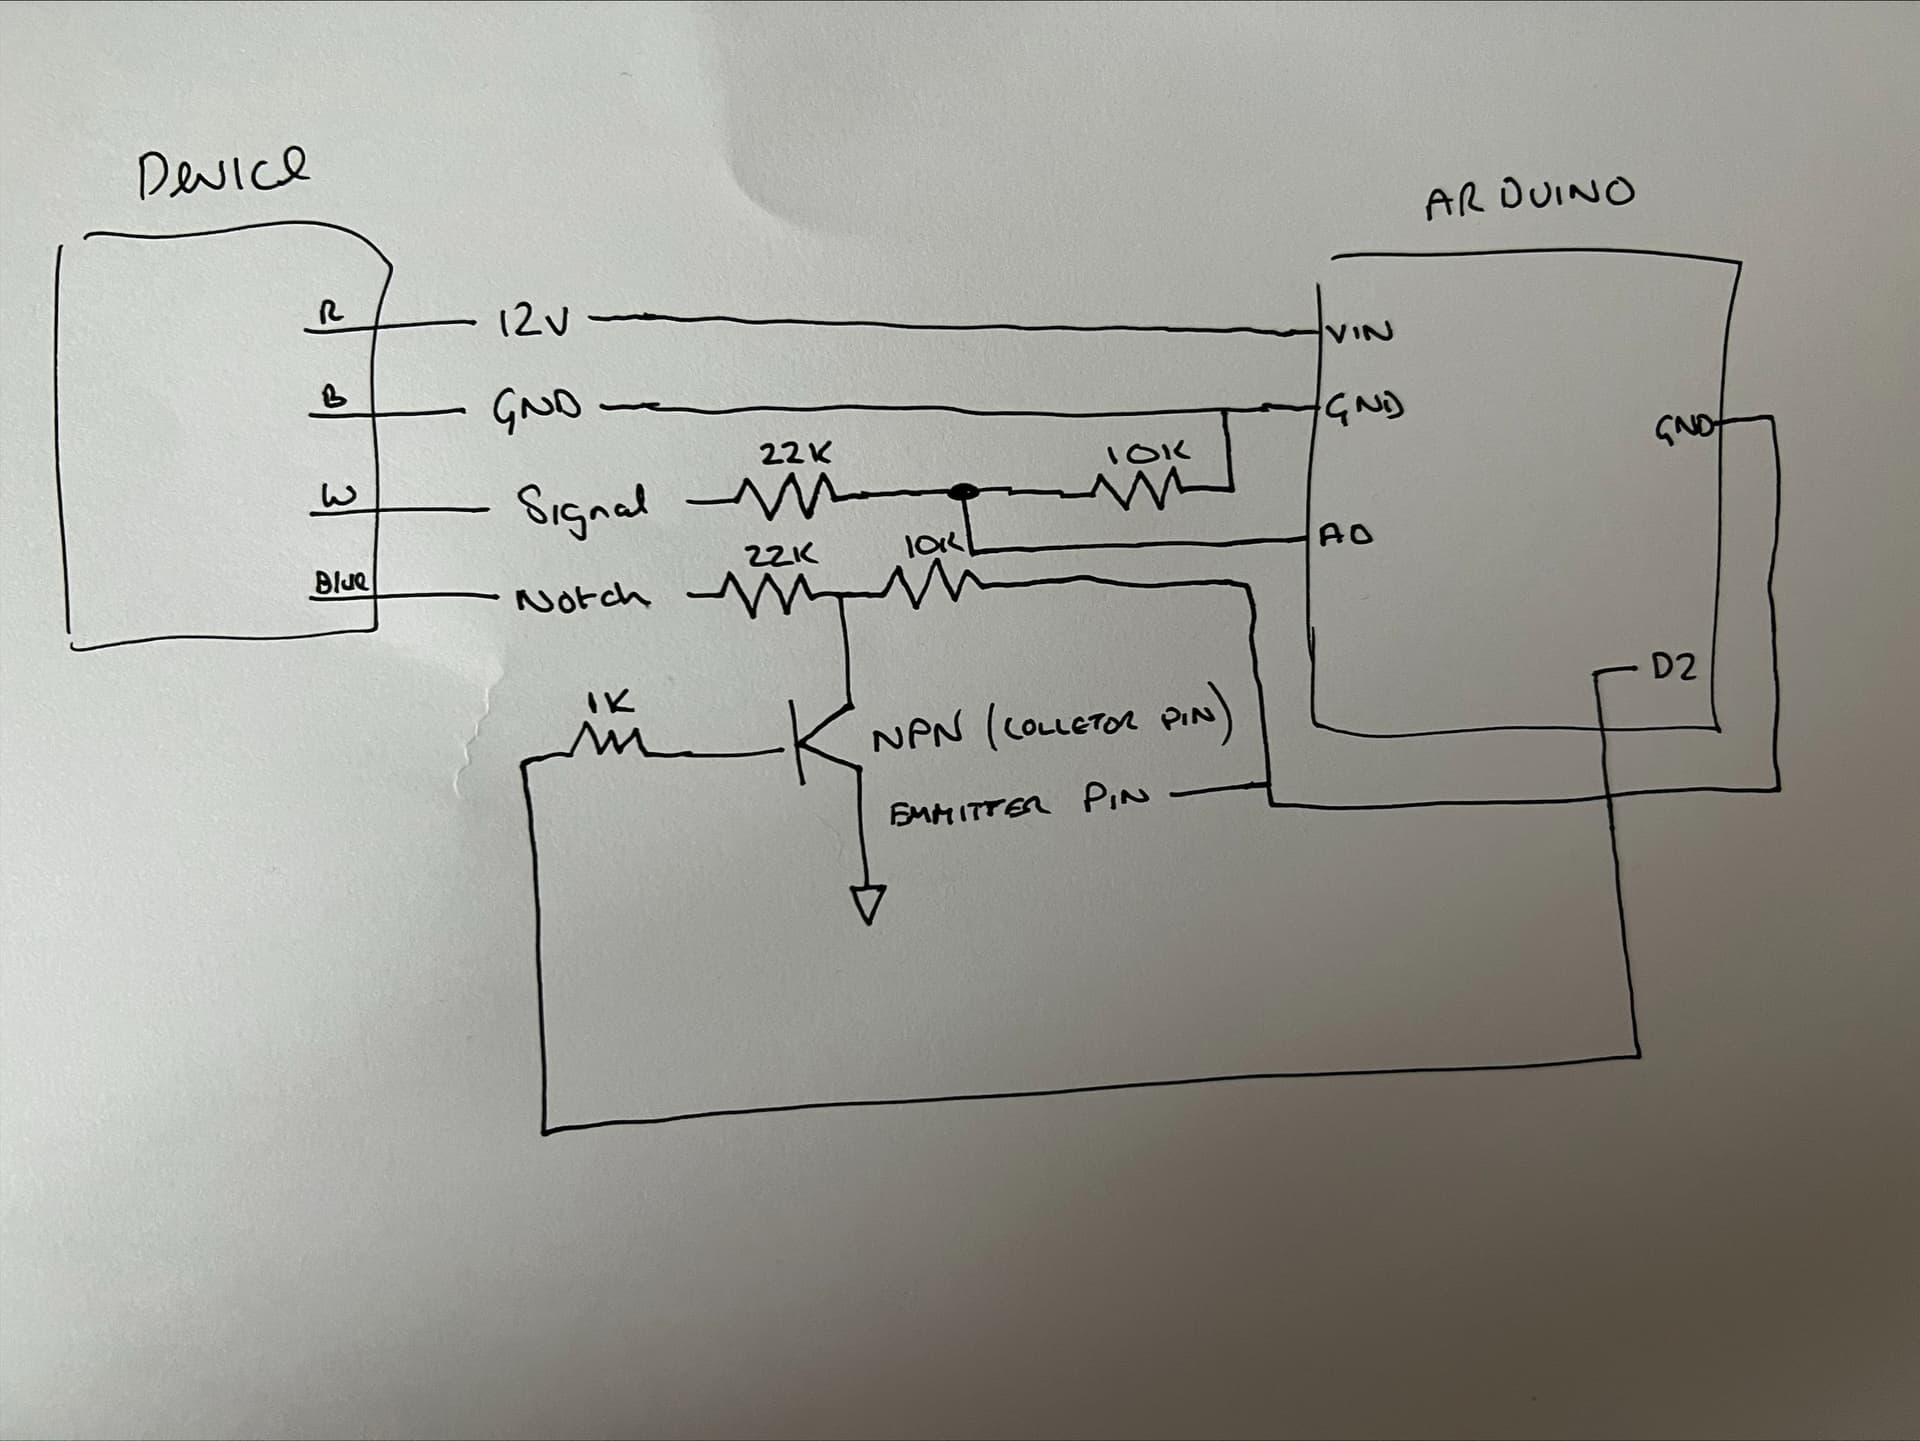 Device
ARDUINO
R
12V
VIN
B
GND
GND
GND
22K
10K
W
Signal
A0
22K
10K
Blue
Notch
D2
1K
NPN (COLLETOR PIN)
EMMITTER PIN